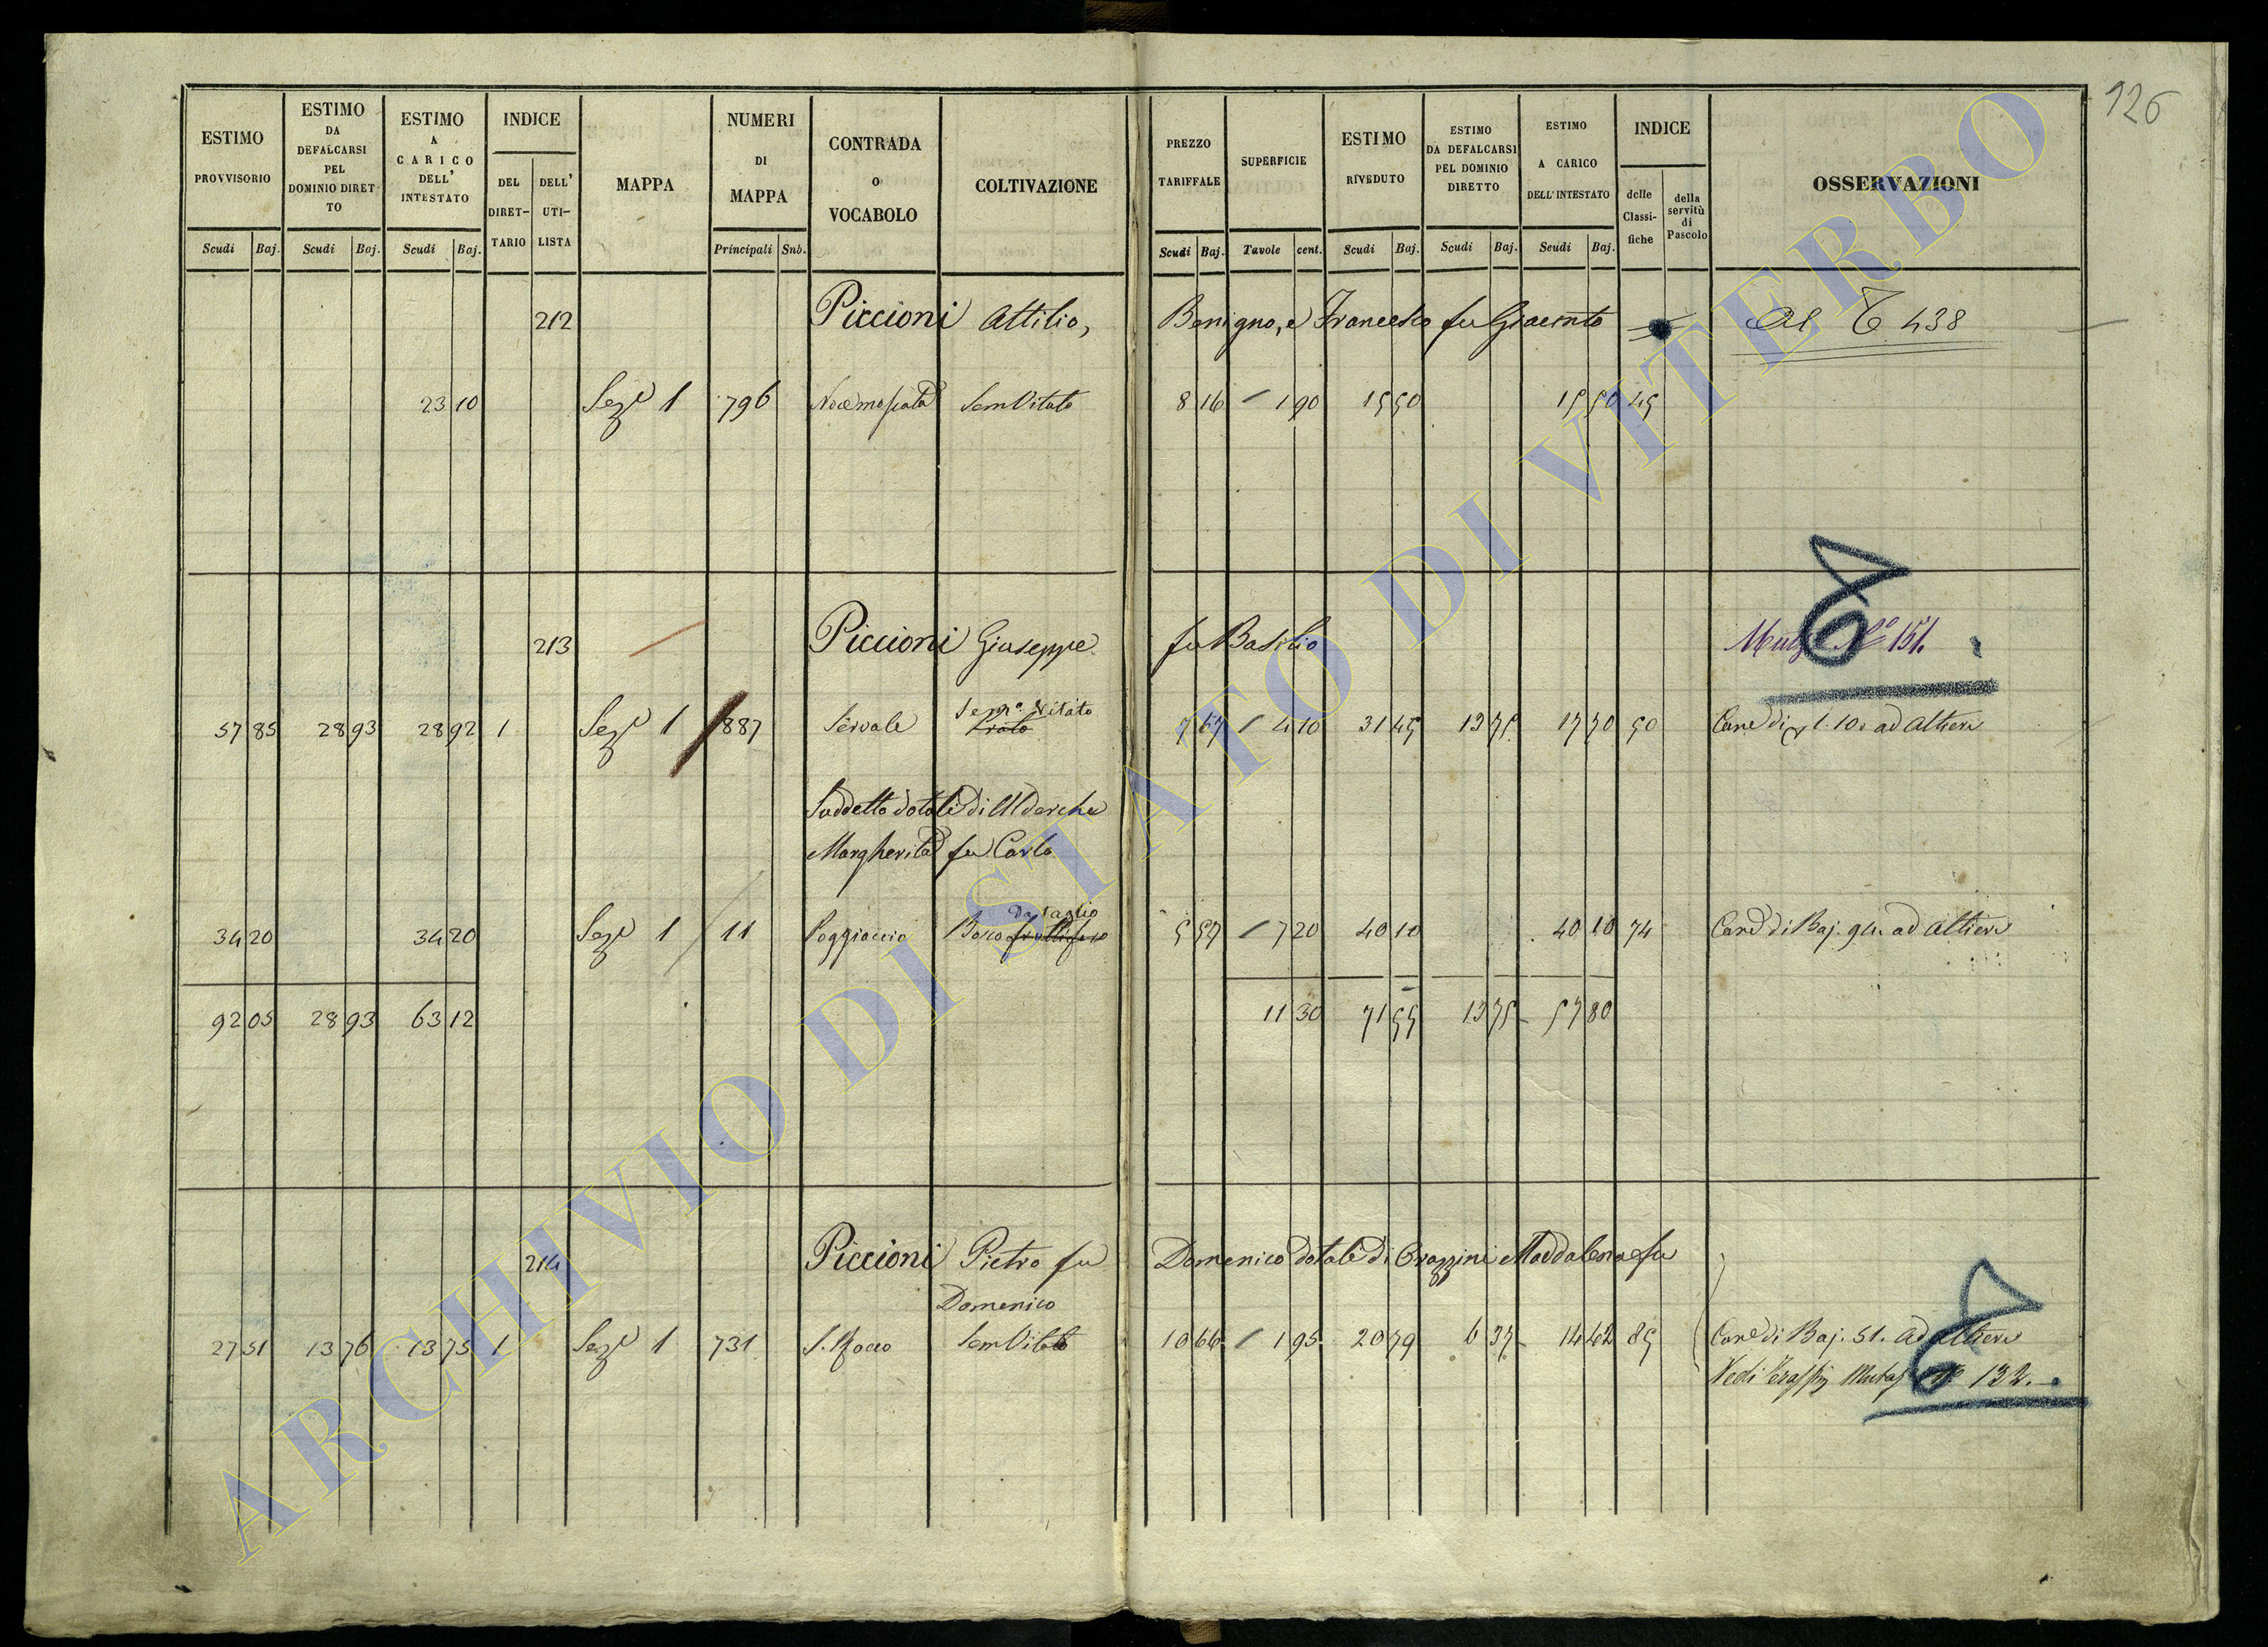 126
ESTIMO PROVVISORIO Scudi Baj.
ESTIMO DA DEFALCARSI PEL DOMINIO DIRET TO Scudi Baj.
ESTIMO A CARICO DELL' INTESTATO Scudi Baj.
INDICE DEL DIRET-TARIO DELL' UTI-LISTA
MAPPA
NUMERI DI MAPPA Principali Sub.
CONTRADA O VOCABOLO
COLTIVAZIONE
PREZZO TARIFFALE Scudi Baj.
SUPERFICIE Tavole cent.
ESTIMO RIVEDUTO Scudi Baj.
ESTIMO DA DEFALCARSI PEL DOMINIO DIRETTO Scudi Baj.
ESTIMO A CARICO DELL'INTESTATO Scudi Baj.
INDICE delle Classi-fiche della servitù di Pascolo
OSSERVAZIONI
212 Piccioni Attilio, Benigno, e Francesco fu Giacinto Al 438
23 10 Seze 1 796 Nocemoscata SemVitato 8 16 1 90 15 50 15 50 45
213 Piccioni Giuseppe fu Basilio No 151.
57 85 28 93 28 92 1 Seze 1 887 Servale Semo Vitato Prato 7 67 4 10 31 45 13 75 17 70 50 Cane di 1. 10. ad Altieri
Suddetto dotale di
Margherita fu Carlo
34 20 34 20 Seze 1 11 Poggiaccio Bosco da taglio fruttifero 5 57 7 20 40 10 40 10 74 Cane di Baj. 94. ad Altieri
92 05 28 93 63 12 11 30 71 55 13 75 57 80
214 Piccioni Pietro fu Domenico dotale di Maddalena fu
Domenico
27 51 13 76 13 75 1 Seze 1 731 S. Rocco SemVitato 10 66 1 95 20 79 6 37 14 42 85 Cane di Baj. 51. ad Altieri
Vedi 132.
ARCHIVIO DI STATO DI VITERBO